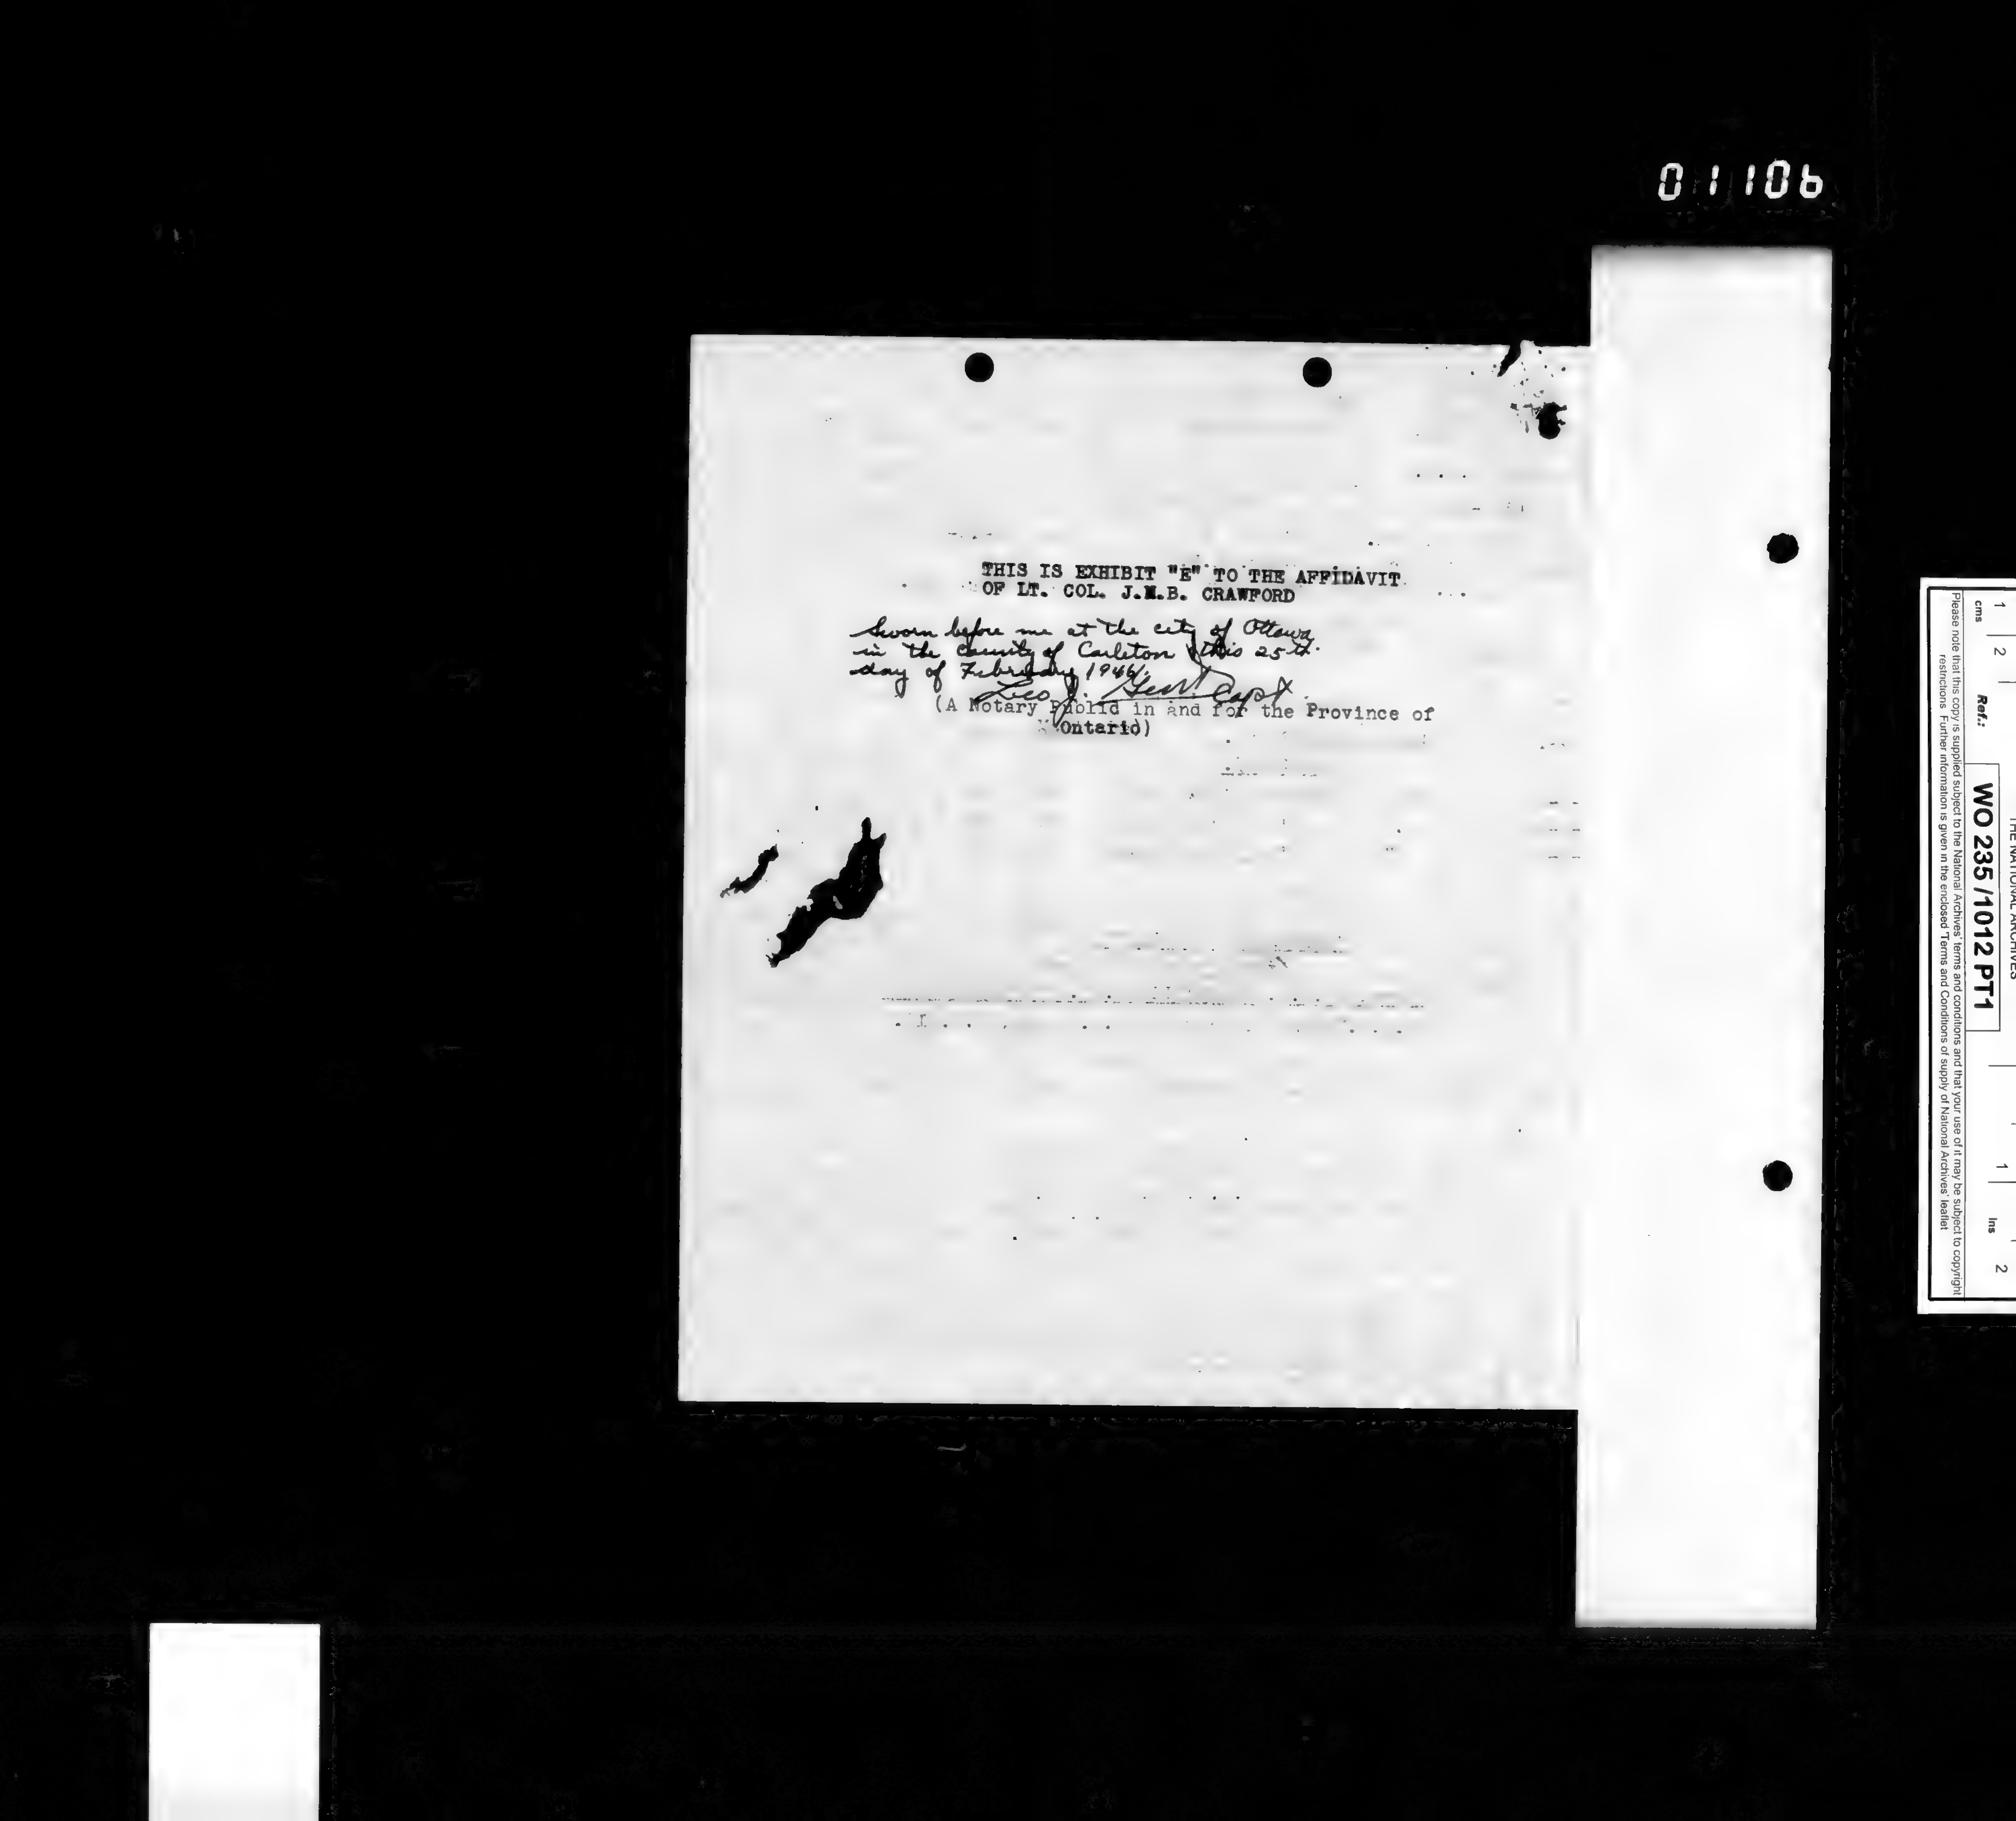 01106
THIS IS EXHIBIT "E" TO THE AFFIDAVIT
OF LT. COL. J.N.B. CRAWFORD
Sworn before me at the city of Ottawa
in the county of Carleton this 25th
day of February 1946.
Leo J. Capt
(A Notary Public in and for the Province of
Ontario)
THE NATIONAL ARCHIVES
1 2 1 2
cms Ref.: WO 235 /1012 PT1 Ins
Please note that this copy is supplied subject to the National Archives' terms and conditions and that your use of it may be subject to copyright
restrictions. Further information is given in the enclosed 'Terms and Conditions of supply of National Archives' leaflet